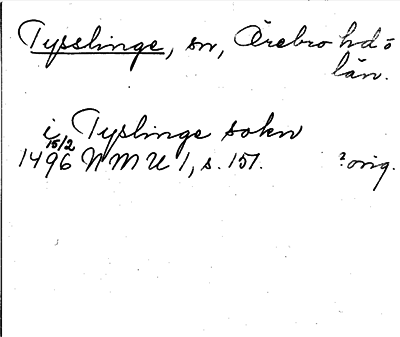 Tysslinge, sn, Örebro hd o
län.
i Tyslinge sokn
15/2
1496 NMU 1, s. 151. ? orig.